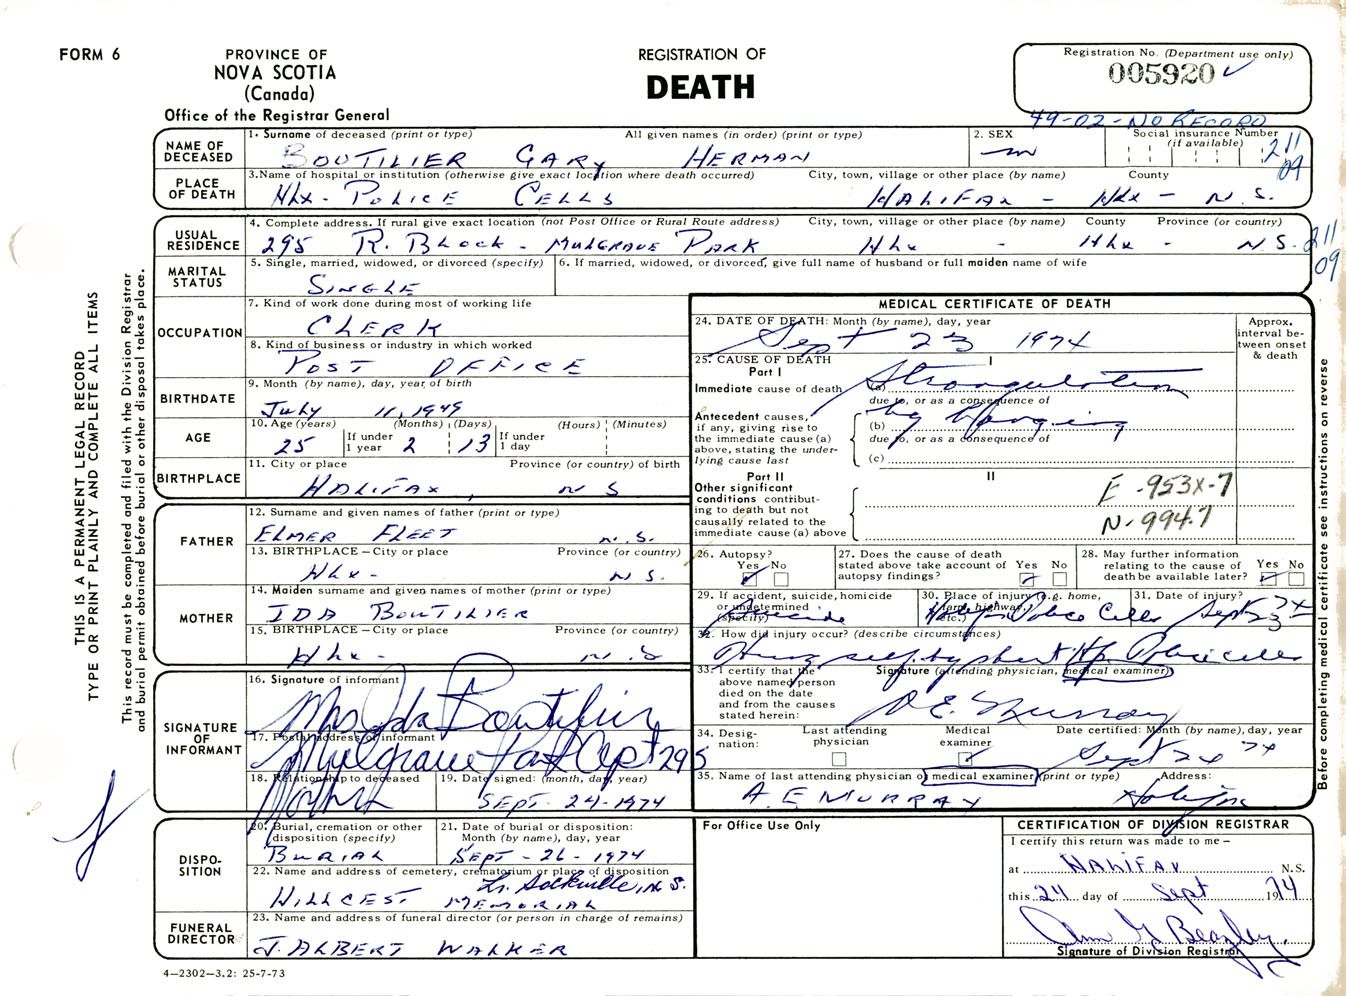 FORM 6
PROVINCE OF
NOVA SCOTIA
(Canada)
Office of the Registrar General
REGISTRATION OF
DEATH
Registration No. (Department use only)
005920
49-02-NO RECORD
NAME OF DECEASED
1. Surname of deceased (print or type) All given names (in order) (print or type)
BOUTILIER GARY HERMAN
2. SEX
m
Social insurance Number (if available)
211
09
PLACE OF DEATH
3. Name of hospital or institution (otherwise give exact location where death occurred) City, town, village or other place (by name) County
Hfx - POLICE CELLS HALIFAX - Hfx - N.S.
USUAL RESIDENCE
4. Complete address. If rural give exact location (not Post Office or Rural Route address) City, town, village or other place (by name) County Province (or country)
295 R. BLOCK - MULGRAVE PARK Hfx - Hfx - N.S.
211
09
MARITAL STATUS
5. Single, married, widowed, or divorced (specify)
SINGLE
6. If married, widowed, or divorced, give full name of husband or full maiden name of wife
OCCUPATION
7. Kind of work done during most of working life
CLERK
8. Kind of business or industry in which worked
POST OFFICE
BIRTHDATE
9. Month (by name), day, year of birth
July 11, 1949
AGE
10. Age (years) (Months) (Days) (Hours) (Minutes)
25 If under 1 year 2 13 If under 1 day
BIRTHPLACE
11. City or place Province (or country) of birth
HALIFAX, N S
FATHER
12. Surname and given names of father (print or type)
ELMER FLEET N.S.
13. BIRTHPLACE - City or place Province (or country)
Hfx - N.S.
MOTHER
14. Maiden surname and given names of mother (print or type)
IDA BOUTILIER
15. BIRTHPLACE - City or place Province (or country)
Hfx - N.S
SIGNATURE OF INFORMANT
16. Signature of informant
Mrs Ida Boutilier
17. Postal address of informant
Mulgrave Park Apt 295
18. Relationship to deceased
Mother
19. Date signed: (month, day, year)
SEPT - 24 - 1974
DISPOSITION
20. Burial, cremation or other disposition (specify)
BURIAL
21. Date of burial or disposition: Month (by name), day, year
SEPT - 26 - 1974
22. Name and address of cemetery, crematorium or place of disposition
Lr. Sackville, N.S.
HILLCEST MEMORIAL
FUNERAL DIRECTOR
23. Name and address of funeral director (or person in charge of remains)
J. ALBERT WALKER
4-2302-3.2: 25-7-73
MEDICAL CERTIFICATE OF DEATH
24. DATE OF DEATH: Month (by name), day, year
Sept 23 1974
Approx. interval between onset & death
25. CAUSE OF DEATH
Part I I
Immediate cause of death (a) Strangulation
due to, or as a consequence of
Antecedent causes, if any, giving rise to the immediate cause (a) above, stating the underlying cause last
(b) by Hanging
due to, or as a consequence of
(c)
Part II II
Other significant conditions contributing to death but not causally related to the immediate cause (a) above
E-953X-7
N-994.7
26. Autopsy? Yes No
27. Does the cause of death stated above take account of autopsy findings? Yes No
28. May further information relating to the cause of death be available later? Yes No
29. If accident, suicide, homicide or undetermined (specify)
Suicide
30. Place of injury (e.g. home, farm, highway, etc.)
Police Cells
31. Date of injury?
Sept 23 74
32. How did injury occur? (describe circumstances)
Hung self by shirt Hfx Police cells
33. I certify that the above named person died on the date and from the causes stated herein:
Signature (attending physician, medical examiner)
A E Murray
34. Designation: Last attending physician Medical examiner
Date certified: Month (by name), day, year
Sept 24 74
35. Name of last attending physician or medical examiner (print or type) Address:
A. E MURRAY Halifax
For Office Use Only
CERTIFICATION OF DIVISION REGISTRAR
I certify this return was made to me -
at HALIFAX N.S.
this 24 day of Sept 1974
Ann G Beazley
Signature of Division Registrar
THIS IS A PERMANENT LEGAL RECORD
TYPE OR PRINT PLAINLY AND COMPLETE ALL ITEMS
This record must be completed and filed with the Division Registrar
and burial permit obtained before burial or other disposal takes place.
Before completing medical certificate see instructions on reverse